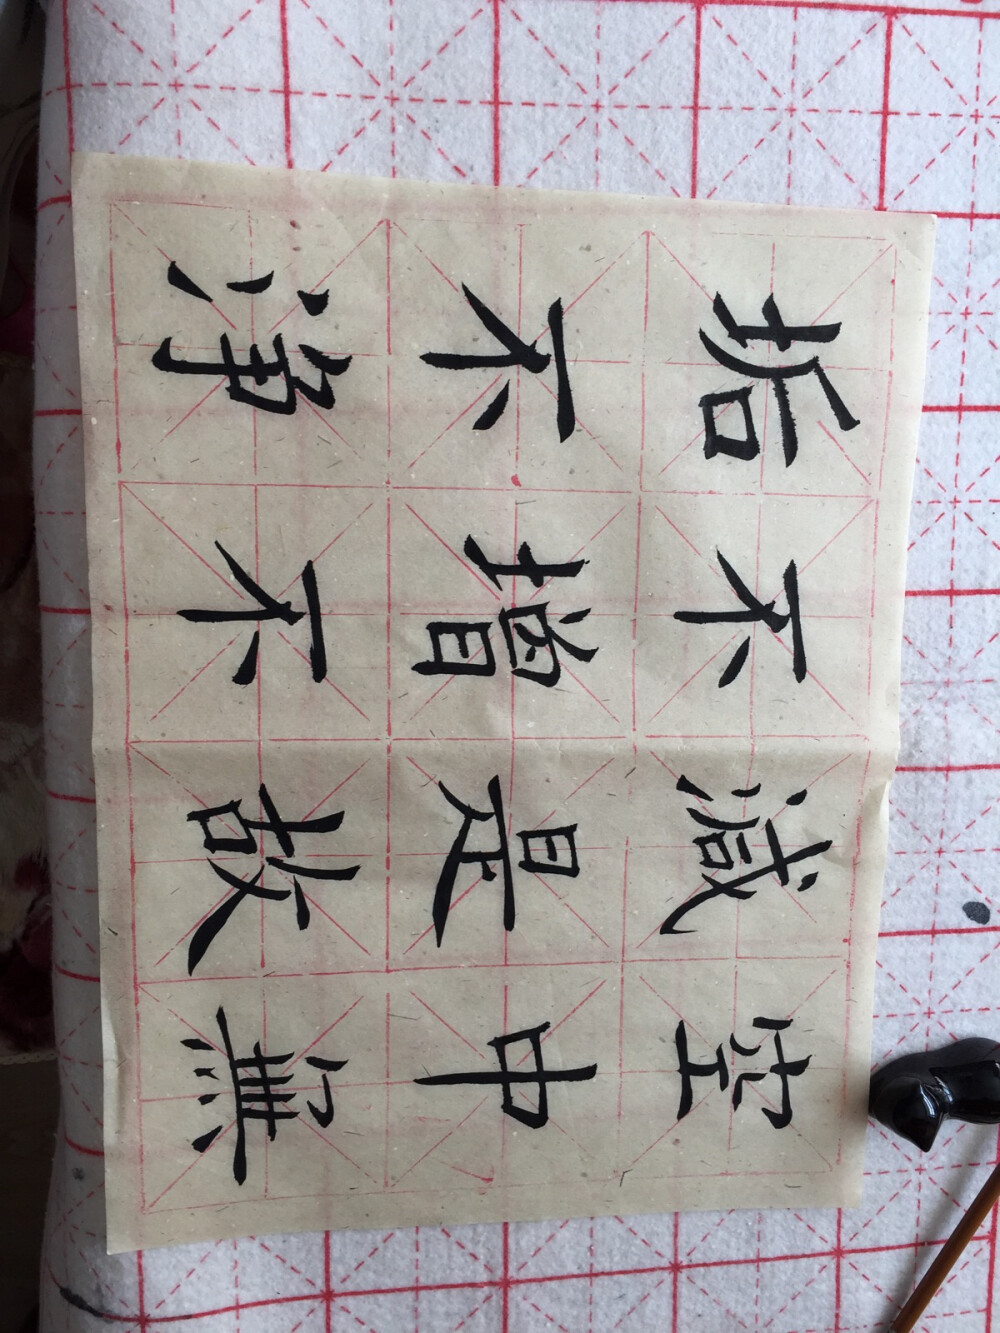 垢不淨
不增不
減是故
空中無